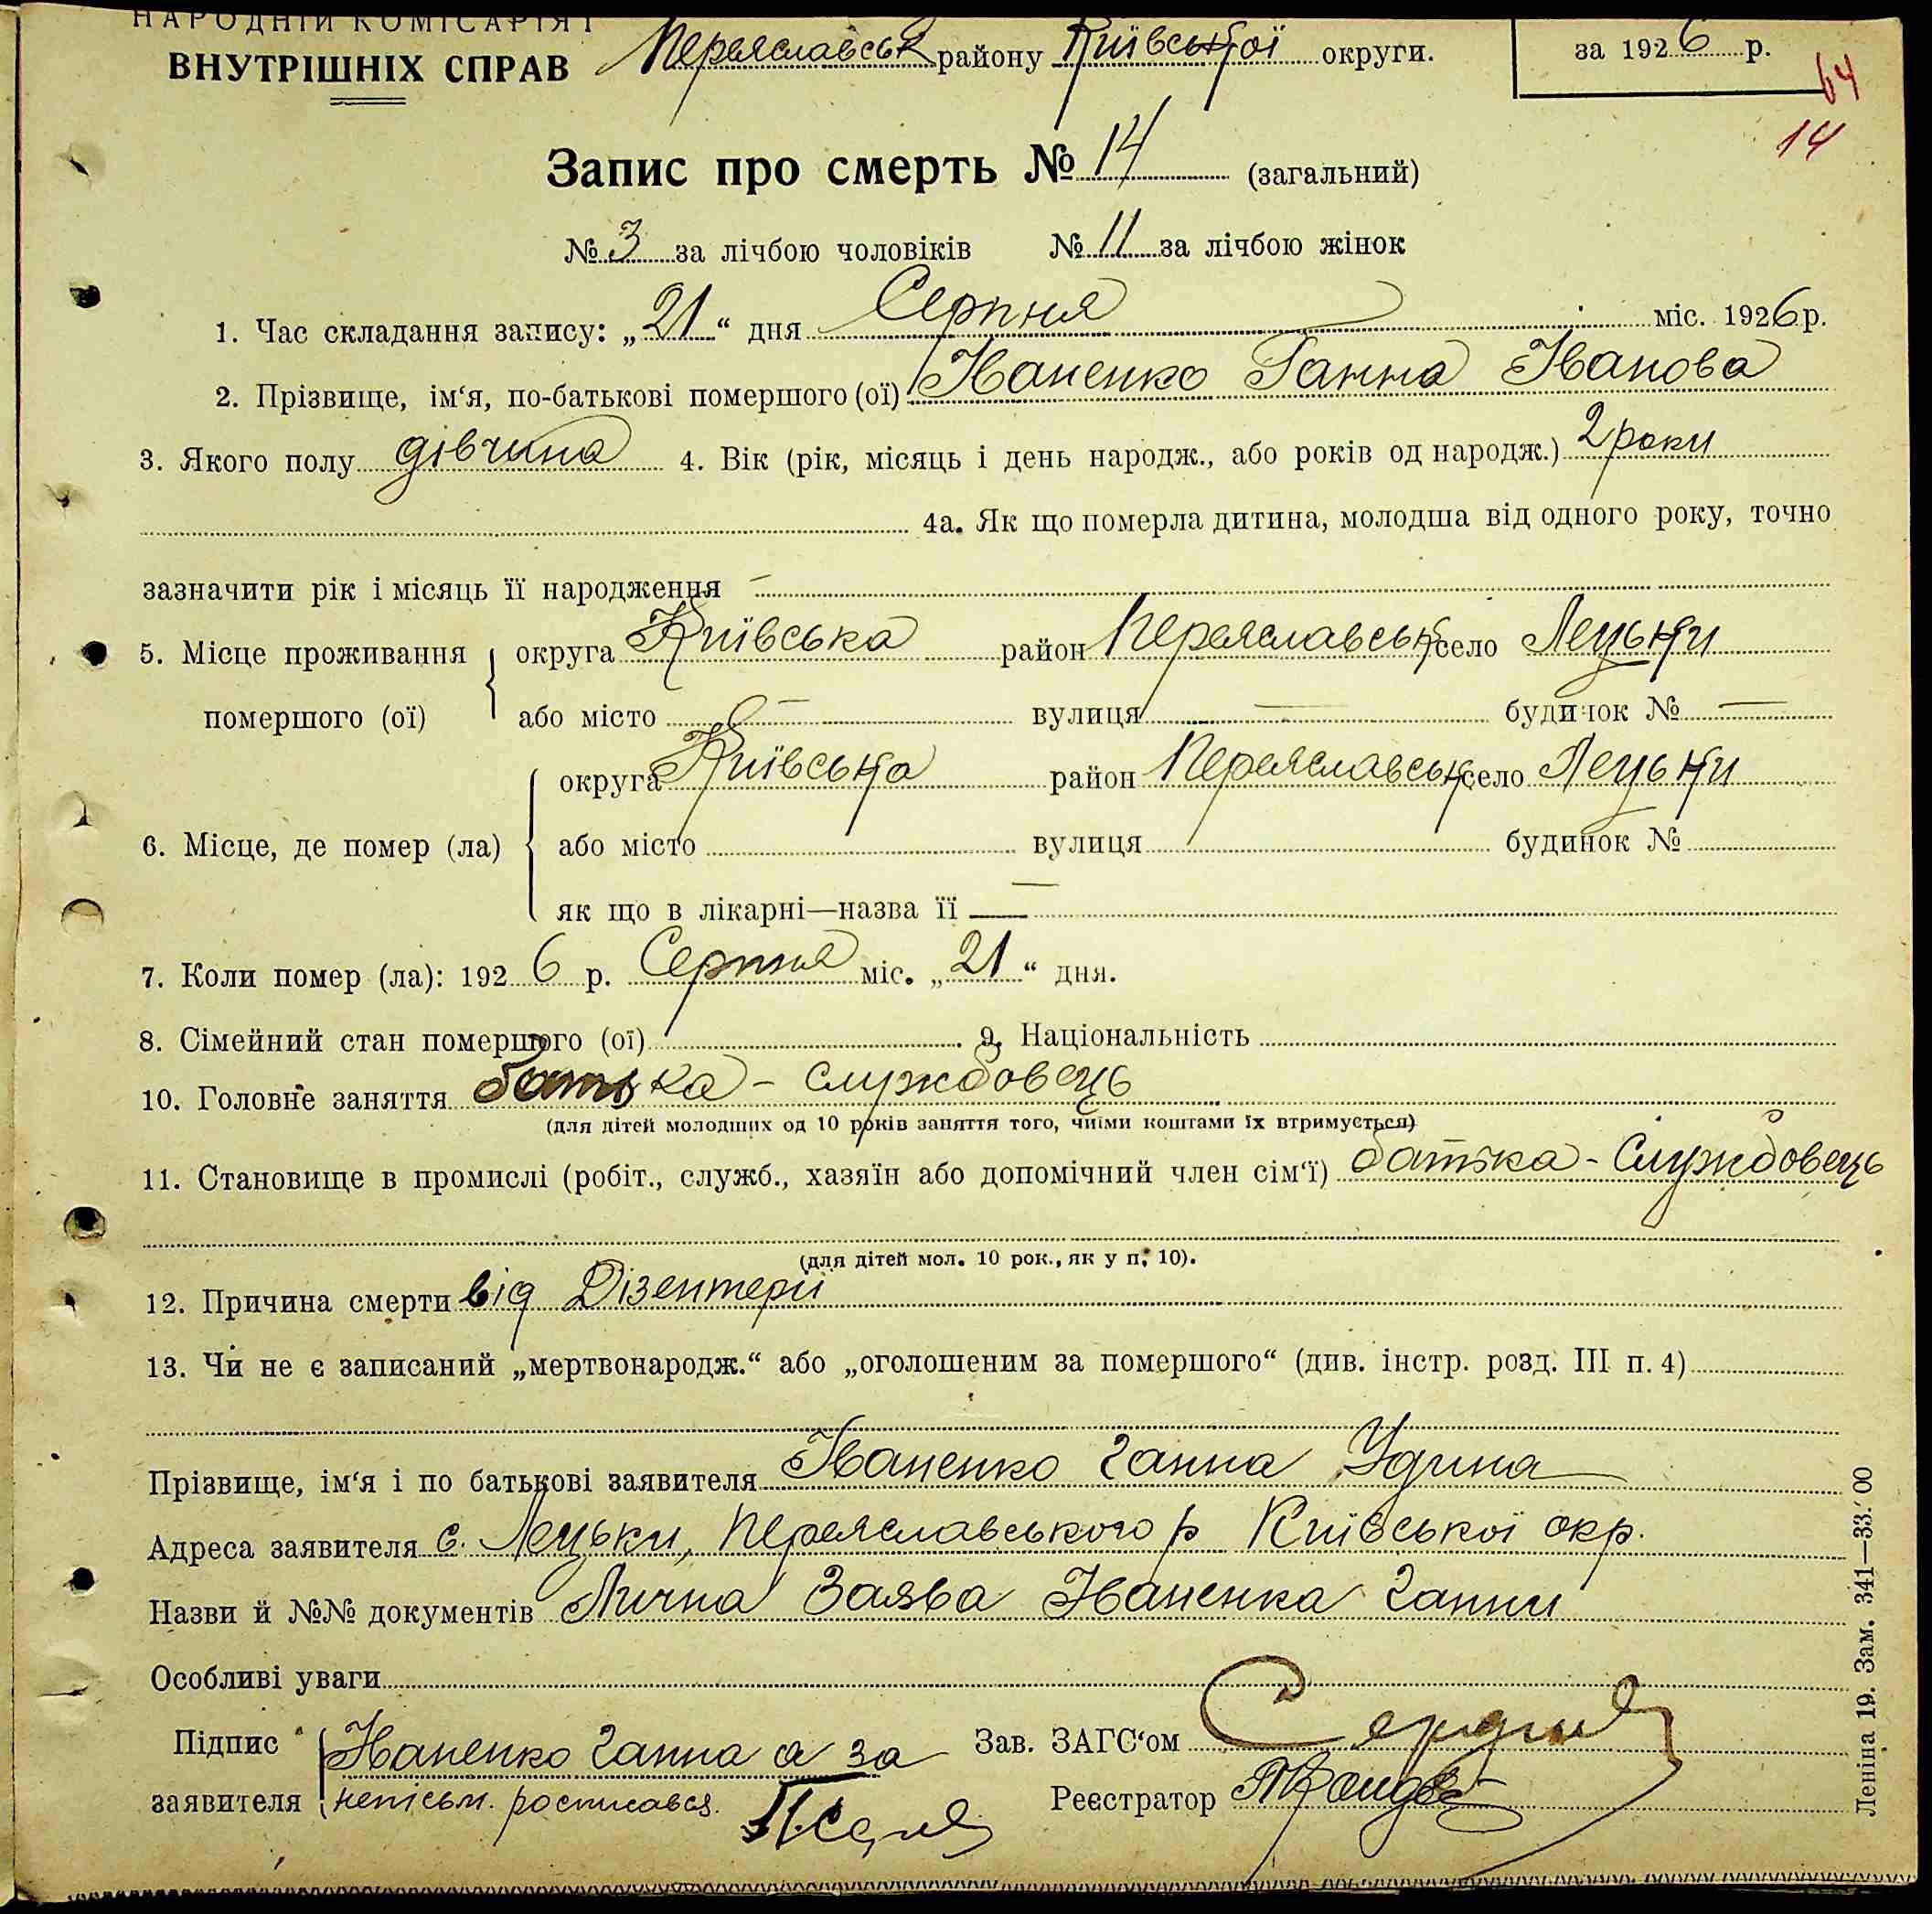 НАРОДНІЙ КОМІСАРІЯТ
ВНУТРІШНІХ СПРАВ Переяславськ району Київської округи. за 1926 р.
64
14
Запис про смерть № 14 (загальний)
№ 3 за лічбою чоловіків № 11 за лічбою жінок
1. Час складання запису: „21“ дня Серпня міс. 1926 р.
2. Прізвище, ім‘я, по-батькові помершого (ої) Іваненко Ганна Іванова
3. Якого полу дівчина 4. Вік (рік, місяць і день народж., або років од народж.) 2 роки
4а. Як що померла дитина, молодша від одного року, точно
зазначити рік і місяць її народження —
5. Місце проживання округа Київська район Переяславськ село Лецьки
помершого (ої) або місто — вулиця — будинок № —
округа Київська район Переяславськ село Лецьки
6. Місце, де помер (ла) або місто вулиця будинок №
як що в лікарні—назва її —
7. Коли помер (ла): 1926 р. Серпня міс. „21“ дня.
8. Сімейний стан помершого (ої) 9. Національність
10. Головне заняття батька - служдовець
(для дітей молодших од 10 років заняття того, чиїми коштами їх втримується)
11. Становище в промислі (робіт., служб., хазяїн або допомічний член сім‘ї) батька - Служдовець
(для дітей мол. 10 рок., як у п. 10).
12. Причина смерти від Дізентерії
13. Чи не є записаний „мертвонародж.“ або „оголошеним за помершого“ (див. інстр. розд. III п. 4)
Прізвище, ім‘я і по батькові заявителя Іваненко Ганна
Адреса заявителя с. Лецьки, Переяславського р Київської окр.
Назви й №№ документів Лична Заява Іваненка Ганни
Особливі уваги
Підпис Іваненко Ганна а за Зав. ЗАГС‘ом
заявителя непісьм. росписався. Реєстратор
Леніна 19. Зам. 341—33.´00